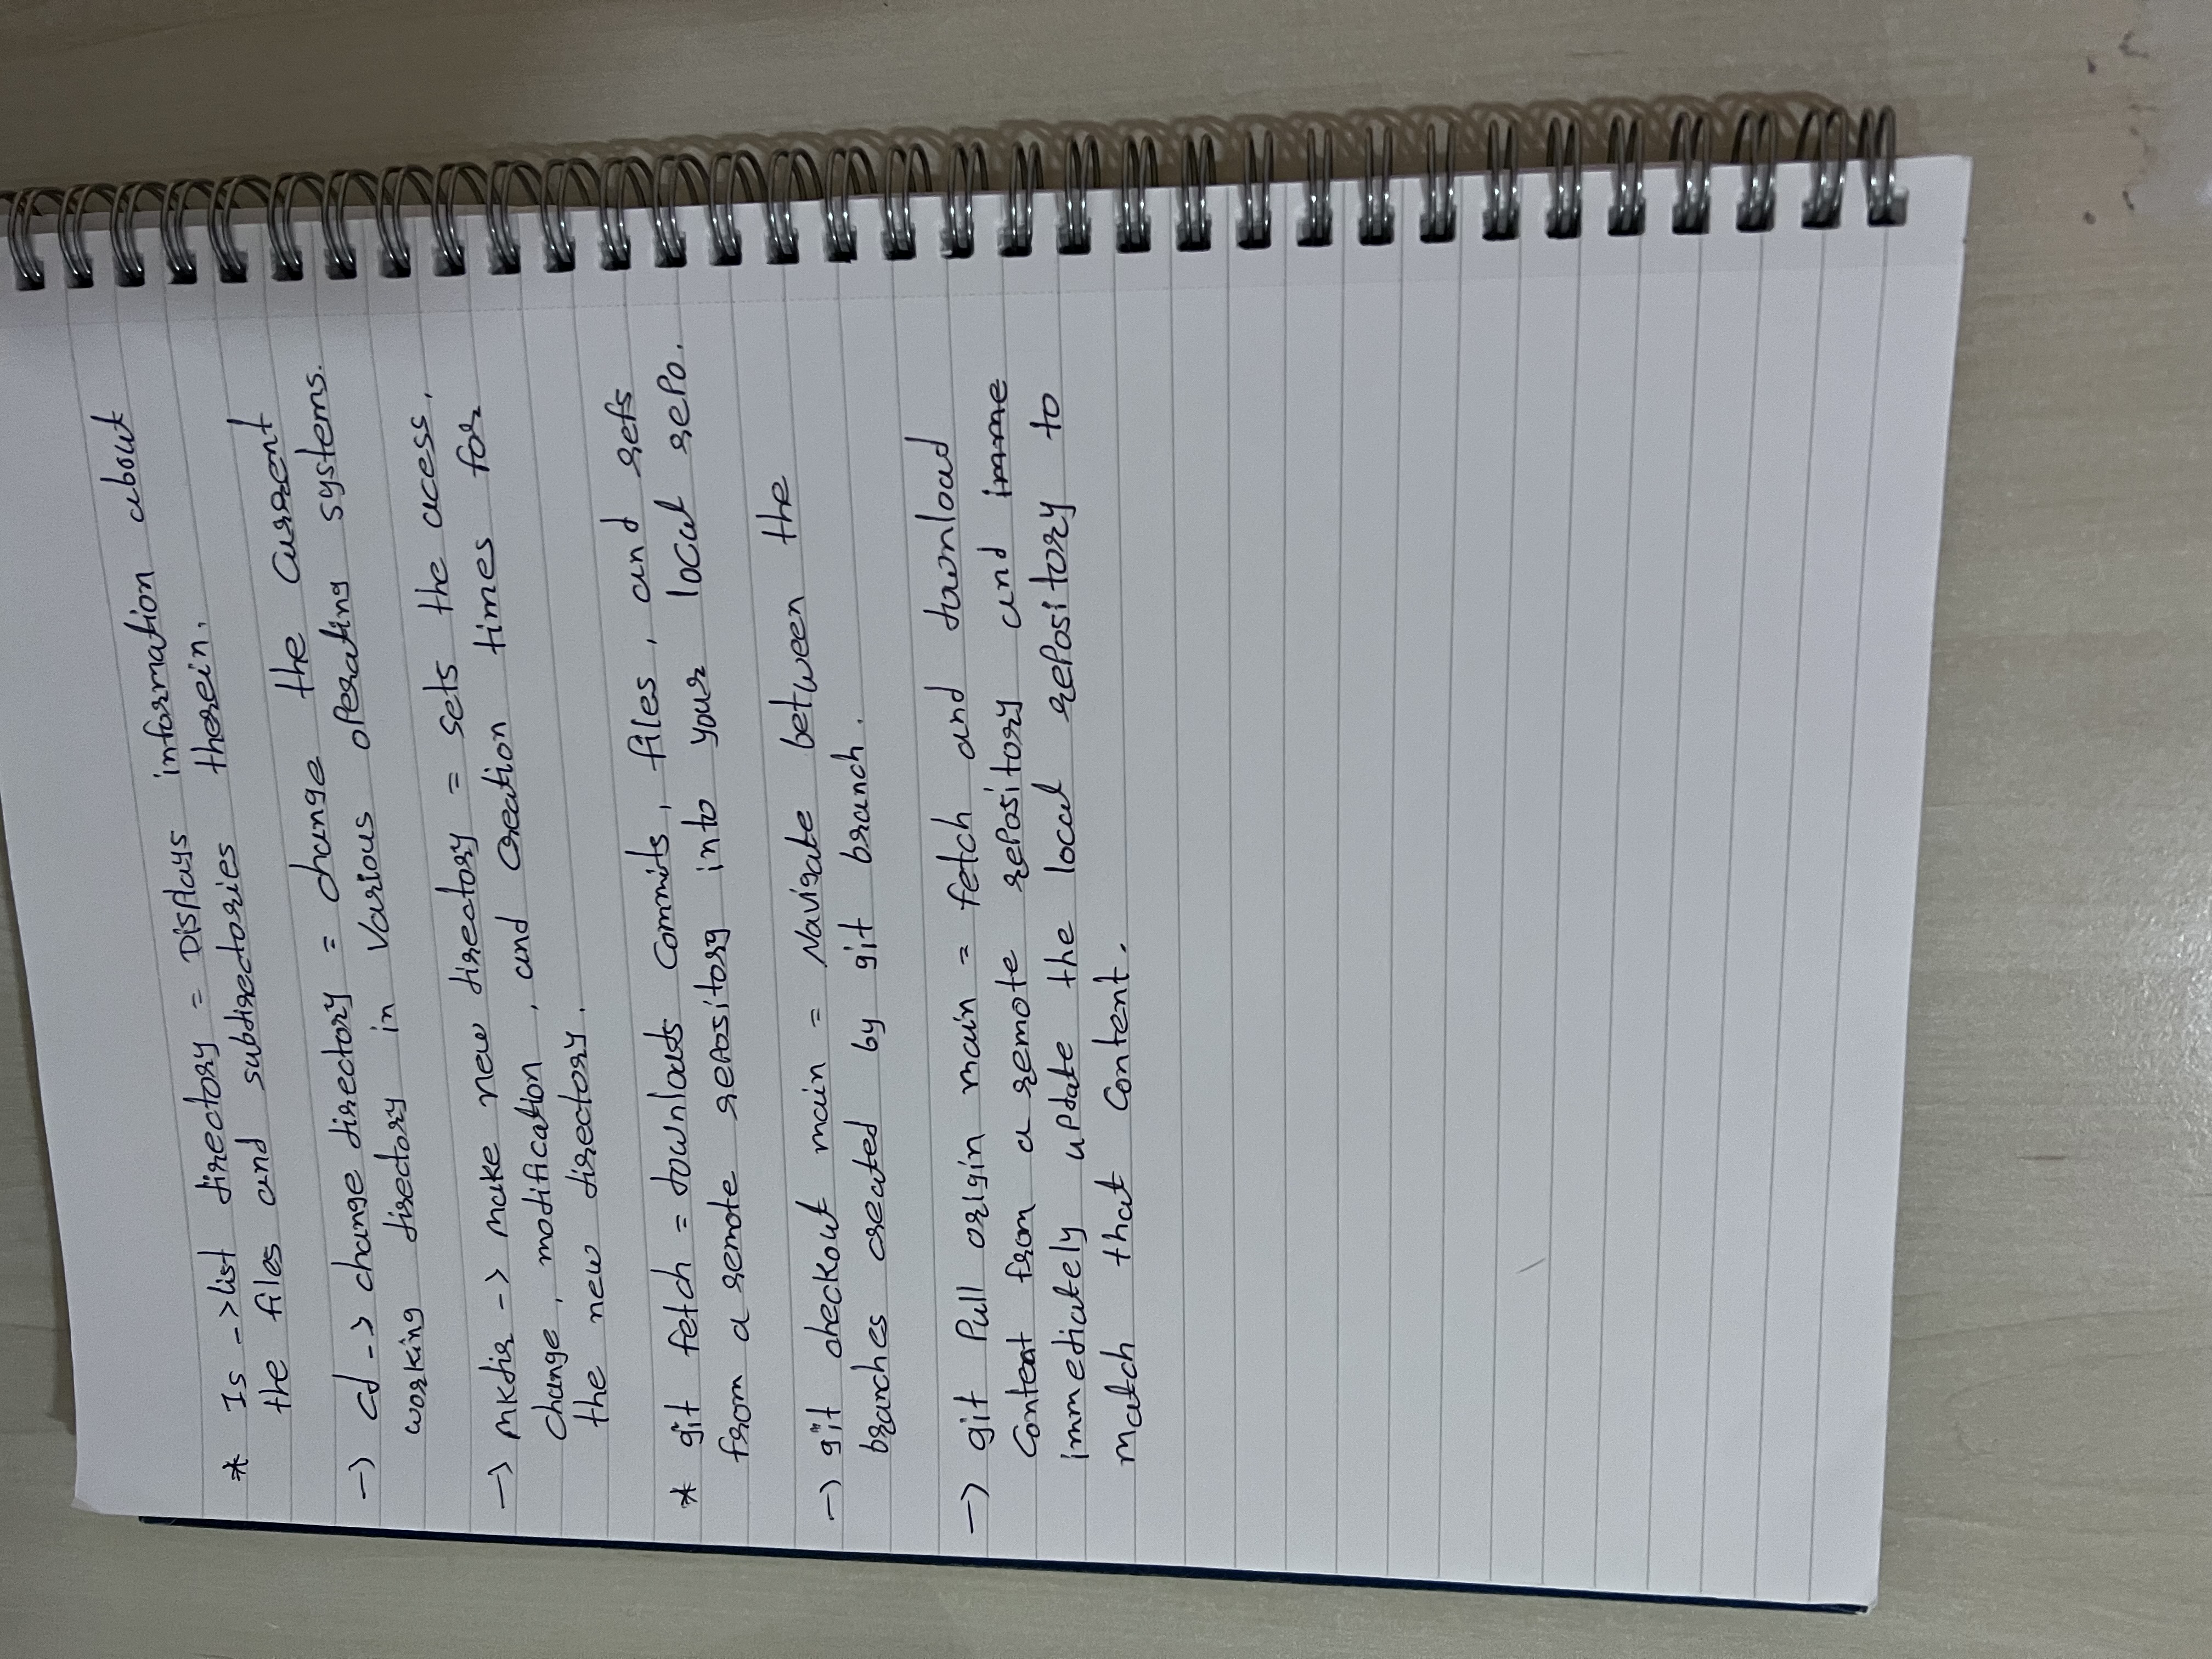 * Is -> list directory = Displays information about
the files and subdirectories therein.
-> cd -> change directory = change the current
working directory in various operating systems.
-> mkdir -> make new directory = sets the acess,
change, modification, and creation times for
the new directory.
* git fetch = downloads commits, files, and refs
from a remote repository into your local repo.
-> git checkout main = Navigate between the
branches created by git branch.
-> git Pull origin main = fetch and download
Content from a remote repository and imme
immediately update the local repository to
match that Content.